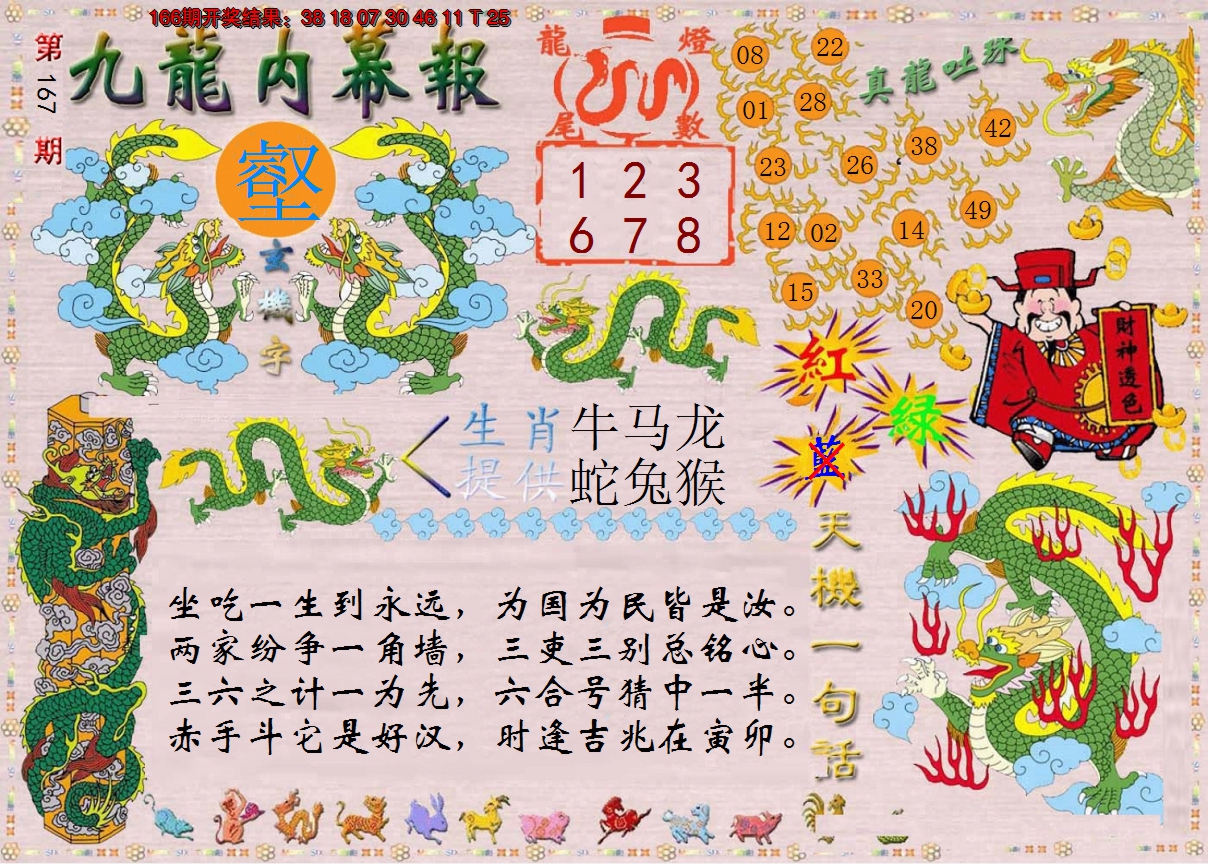 166期开奖结果：38 18 07 30 46 11 T 25
第167期
九龍内幕報
壑
玄機字
龍燈尾數
1 2 3
6 7 8
真龍吐珠
08 22
01 28
23 26 38 42
12 02 14 49
15 33 20
財神透色
紅
綠
藍
生肖提供
牛马龙
蛇兔猴
天機一句話
坐吃一生到永远，为国为民皆是汝。
两家纷争一角墙，三吏三别总铭心。
三六之计一为先，六合号猜中一半。
赤手斗它是好汉，时逢吉兆在寅卯。